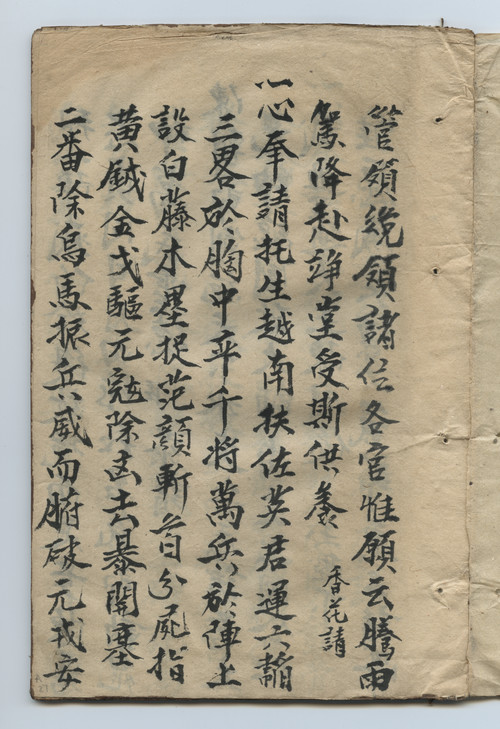 管領統領諸位各官惟願云騰雨
駕降赴諍堂受斯供養 香花請
心奉請托生越南扶佐英君運六韜
三畧於胸中卒千将萬兵於陣上
設白藤木壘捉范顔斬首分屍指
黄鉞金戈驅元寇除凶去暴開塞
二番除烏馬振兵威而腑破元戎安